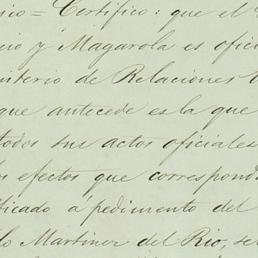 = Certifico: que el
y Magarola es ofic
de Relaciones
que antecede es la que
todos sus actos oficiales
efectos que correspond
ficado á pedimento del
lo Martinez del Rio, se